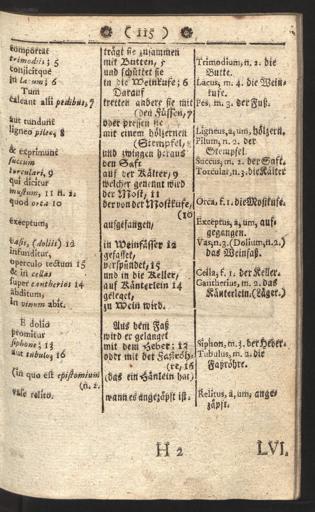 ( 115 )
comportat
trimodiis; 5
conjicitque
in lacum; 6
Tum
calcant alii pedibus, 7
aut tundunt
ligneo pilo, 8
& exprimunt
succum
torculari, 9
qui dicitur
mustum, 11 n. 2.
quod orca 10
exceptum,
vasis, (doliis) 12
infunditur,
operculo tectum 15
& in cellas
super cantherios 14
abditum,
in vinum abit.
E dolio
promitur
siphone; 13
aut tubulo, 16
(in quo est epistomium
(n. 2.
vase relito.
trägt sie zusammen
mit Butten, 5
und schüttet sie
in die Weinkufe; 6
Darauf
tretten andere sie mit
(den Füssen, 7
oder pressen sie
mit einem hölzernen
(Stempfel, 8
und zwingen heraus
den Saft
auf der Kälter, 9
welcher genennt wird
der Most, 11
der von der Mostkufe,
(10
aufgefangen,
in Weinfässer 12
gefasset,
verspündet, 15
und in die Keller,
auf Känterlein 14
geleget,
zu Wein wird.
Aus dem Faß
wird er gelanget
mit dem Heber; 13
oder mit der Faßröh-
(re, 16
(das ein Hänlein hat)
wann es angezäpft ist.
Trimodium, n. 2. die
Butte.
Lacus, m. 4. die Wein-
kufe.
Pes, m. 3. der Fuß.
Ligneus, a, um, hölzern.
Pilum, n. 2. der
Stempfel.
Succus, m. 2. der Saft.
Torcular, n. 3. die Kälter
Orca, f. 1. die Mostkufe.
Exceptus, a, um, auf-
gegangen.
Vas, n. 3. (Dolium, n. 2.)
das Weinfaß.
Cella, f. 1. der Keller.
Cantherius, m. 2. das
Känterlein. (Läger.)
Siphon, m. 3. der Heber.
Tubulus, m. 2. die
Faßröhre.
Relitus, a, um, ange-
zäpft.
H 2
LVI.